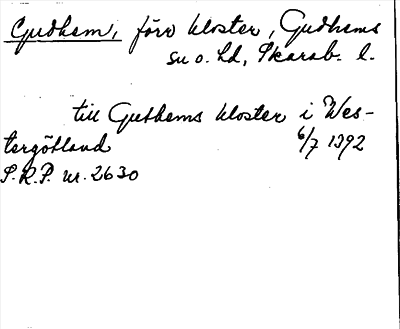 Gudhem, förv kloster, Gudhems
su o. hd, Skarab. l.
till Guthems kloster i Wes-
tergötland 6/7 1392
S.R.P. nr. 2630